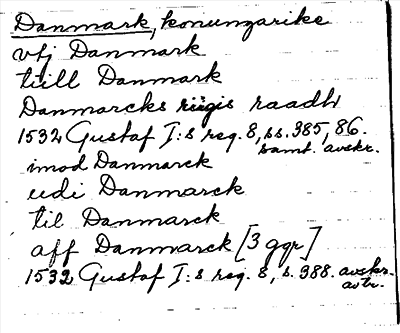 Danmark, konungarike
vtj Danmark
tiill Danmark
Danmarcks riigis raadh
1532 Gustaf I:s reg. 8, ss. 385, 86.
samt. avskr.
imod Danmarck
udi Danmarck
til Danmarck
aff Danmarck [3 ggr]
1532 Gustaf I:s reg. 8, s. 388. avskr.
avtr.